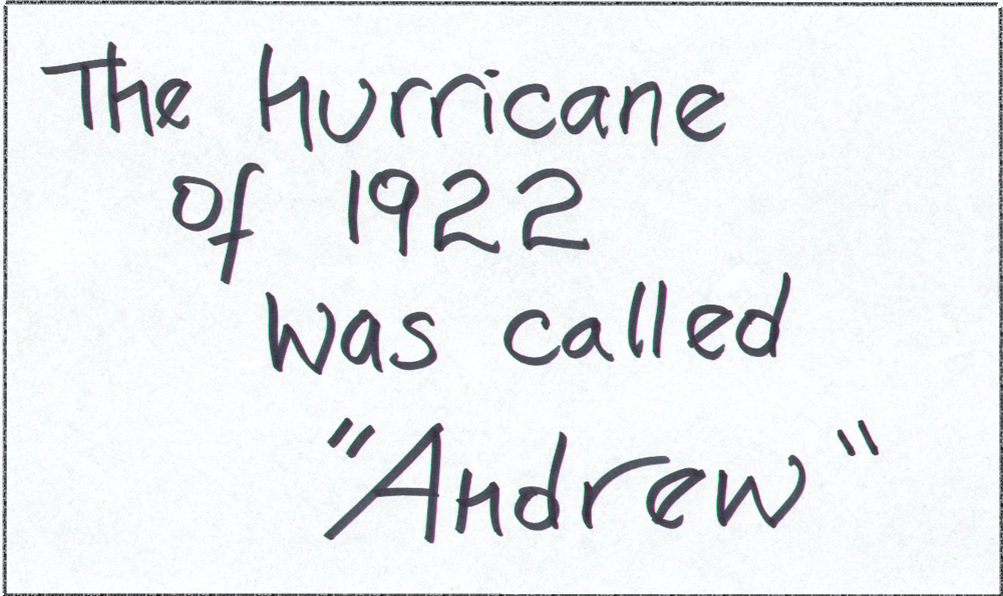 The hurricane
of 1922
was called
"Andrew"